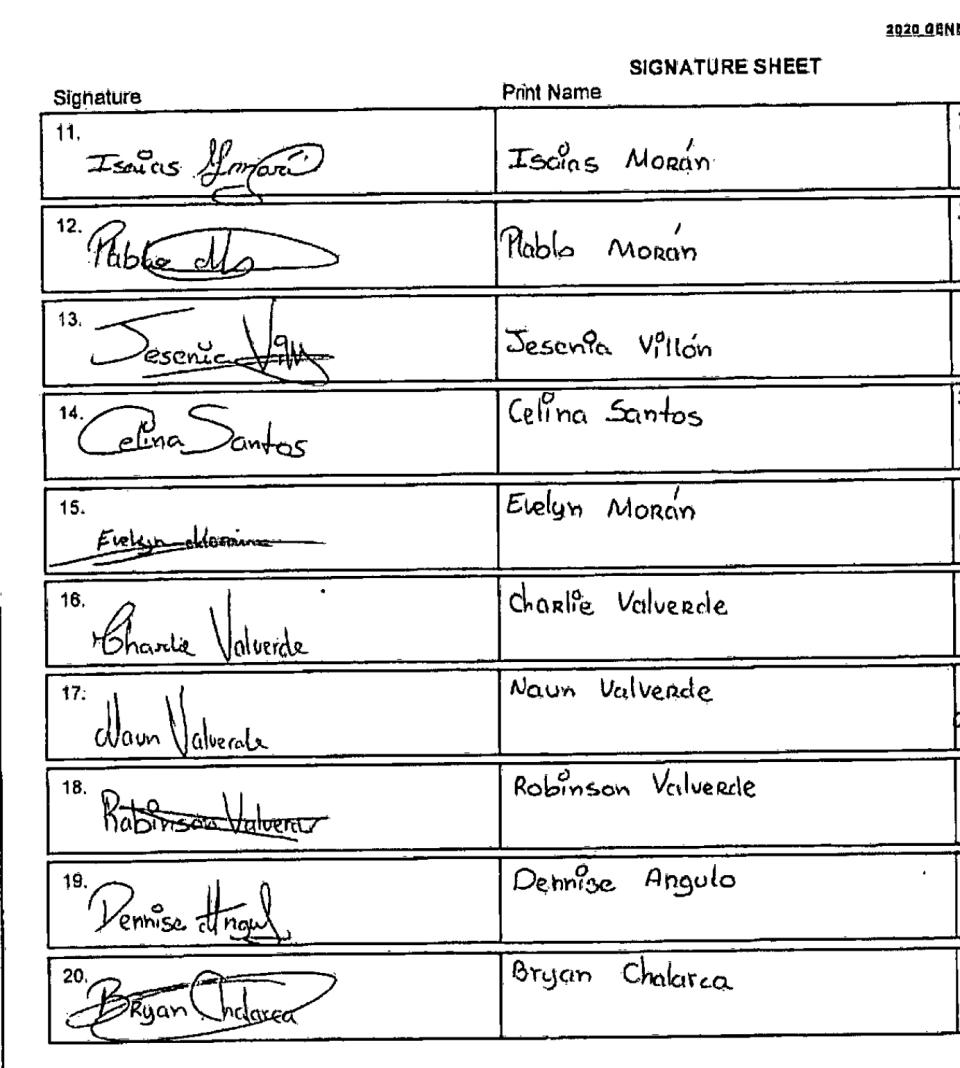 2020 GENE
SIGNATURE SHEET
Signature Print Name
11. Isaias Moran Isaias Morán
12. Pablo Mo Pablo Morán
13. Jesenia Vill Jesenia Villón
14. Celina Santos Celina Santos
15. Evelyn Moran Evelyn Morán
16. Charlie Valverde Charlie Valverde
17. Naun Valverde Naun Valverde
18. Robinson Valverde Robinson Valverde
19. Dennise Angul Dennise Angulo
20. Bryan Chalarca Bryan Chalarca